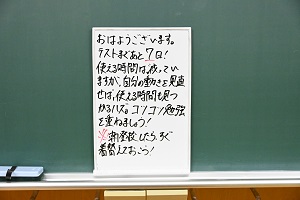 おはようございます。
テストまであと7日!
使える時間は、減ってい
ますが、自分の動きを見直
せば、使える時間も見つ
かるハズ。コツコツ勉強
を重ねましょう!
※登校したら、すぐ
着替えておこう!